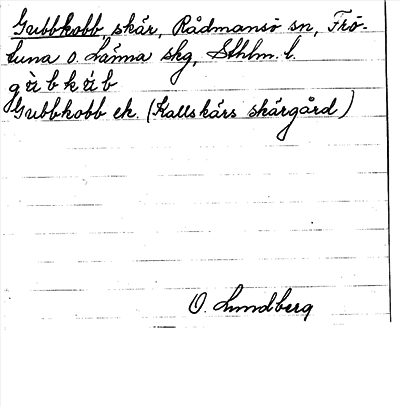 Gubbkobb skär, Rådmansö sn, Frö-
tuna o. Länna skg, Sthlm. l.
gùbkúb
Gubbkobb ek. (Kallskärs skärgård)
O. Lundberg